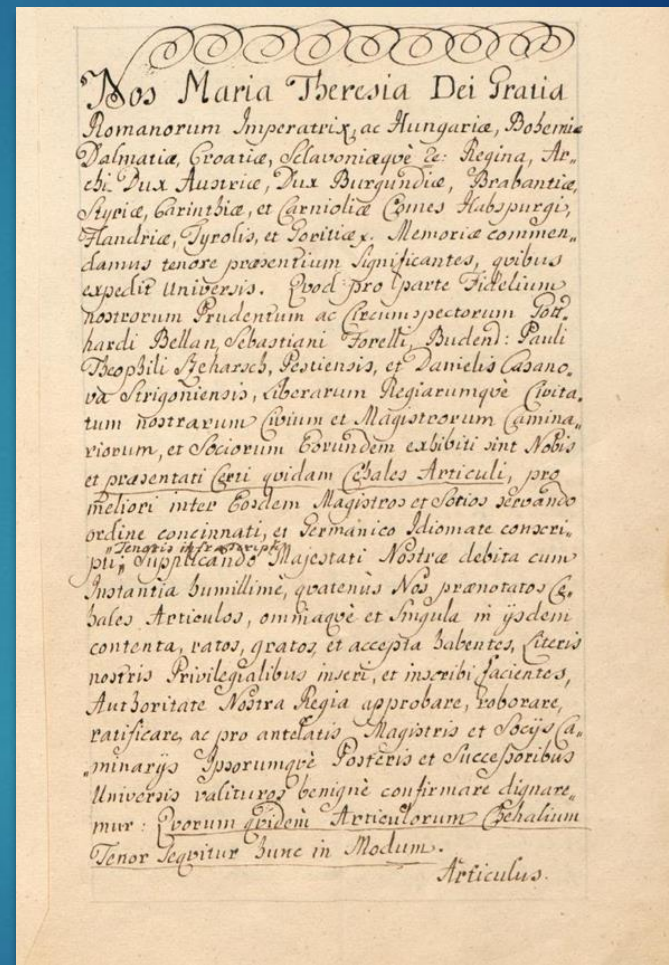 Nos Maria Theresia Dei Gratia
Romanorum Imperatrix, ac Hungariæ, Bohemiæ
Dalmatiæ, Croatiæ, Sclavoniæqvè &c: Regina, Ar„
chi Dux Austriæ, Dux Burgundiæ, Brabantiæ,
Styriæ, Carinthiæ, et Carnioliæ Comes Habspurgi,
Flandriæ, Tyrolis, et Goritiæ. Memoriæ commen„
damus tenore præsentium significantes, qvibus
expedit Universis. Qvod pro parte Fidelium
nostrorum Prudentum ac Circumspectorum Gott„
hardi Bellan, Sebastiani Forelli, Budens: Pauli
Theophili Pestiensis, et Danielis Casano„
va Strigoniensis, Liberarum Regiarumqvè Civita„
tum nostrarum Civium et Magistrorum Camina„
riorum, et Sociorum Eorundem exhibiti sint Nobis
et præsentati Certi qvidam Cehales Articuli, pro
meliori inter Eosdem Magistros et Socios servando
ordine concinnati, et Germanico Idiomate conscri„
„Tenoris infrascripti
pti; Supplicando Majestati Nostræ debita cum
Instantia humillimè, qvatenus Nos prænotatos Ce„
hales Articulos, omniaqvè et singula in ijsdem
contenta, ratos, gratos, et accepta habentes, Literis
nostris Privilegialibus inseri, et inscribi facientes,
Authoritate Nostra Regia approbare, roborare,
ratificare, ac pro antelatis Magistris et Socijs Ca„
„minarijs Ipsorumqvè Posteris et Successoribus
Universis valituros benignè confirmare dignare„
mur: Qvorum qvidem Articulorum Cehalium
Tenor seqvitur hunc in Modum.
Articulus.